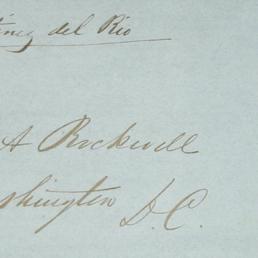 ínez del Rio
A Rockwell
shington D.C.